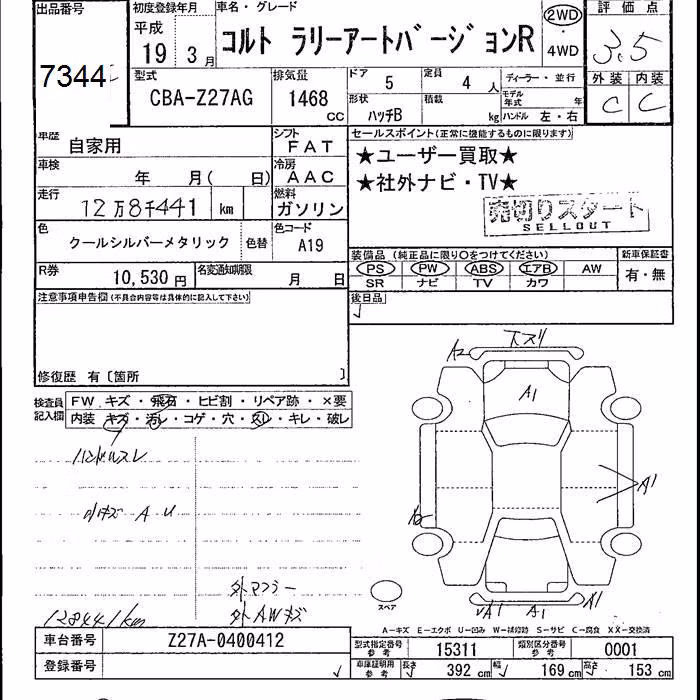 出品番号
7344
初度登録年月
平成
19 3月
車名・グレード
コルト ラリーアートバージョンR
2WD
・
4WD
評価点
3.5
外装 内装
C C
型式
CBA-Z27AG
排気量
1468 CC
ドア 5
定員 4人
形状 ハッチB
積載 kg
ディーラー・並行
モデル年式 年
ハンドル 左・右
車歴 自家用
シフト FAT
車検 年 月( 日)
冷房 AAC
走行 12万8千441 km
燃料 ガソリン
色 クールシルバーメタリック 色替
色コード A19
R券 10,530円
名変通知期限 月 日
セールスポイント(正常に機能するものに限ります)
★ユーザー買取★
★社外ナビ・TV★
売切りスタート
SELLOUT
装備品 (純正品に限り○をつけてください)
PS PW ABS エアB AW
SR ナビ TV カワ
新車保証書
有・無
後日品
注意事項申告欄(不具合内容等は具体的に記入して下さい)
修復歴 有〔箇所 〕
検査員記入欄
FW キズ・飛石・ヒビ割・リペア跡・×要
内装 キズ・汚レ・コゲ・穴・スレ・キレ・破レ
ハンドルスレ
内キズ A U
外マフラー
外AWキズ
128441km
下スリ
A2
A1
A1
A1
A1
スペア
A-キズ E-エクボ U-凹み W-補修跡 S-サビ C-腐食 XX-交換済
車台番号 Z27A-0400412
登録番号
型式指定番号 参考 15311
類別区分番号 参考 0001
車庫証明用 参考 長さ 392 cm 幅 169 cm 高さ 153 cm